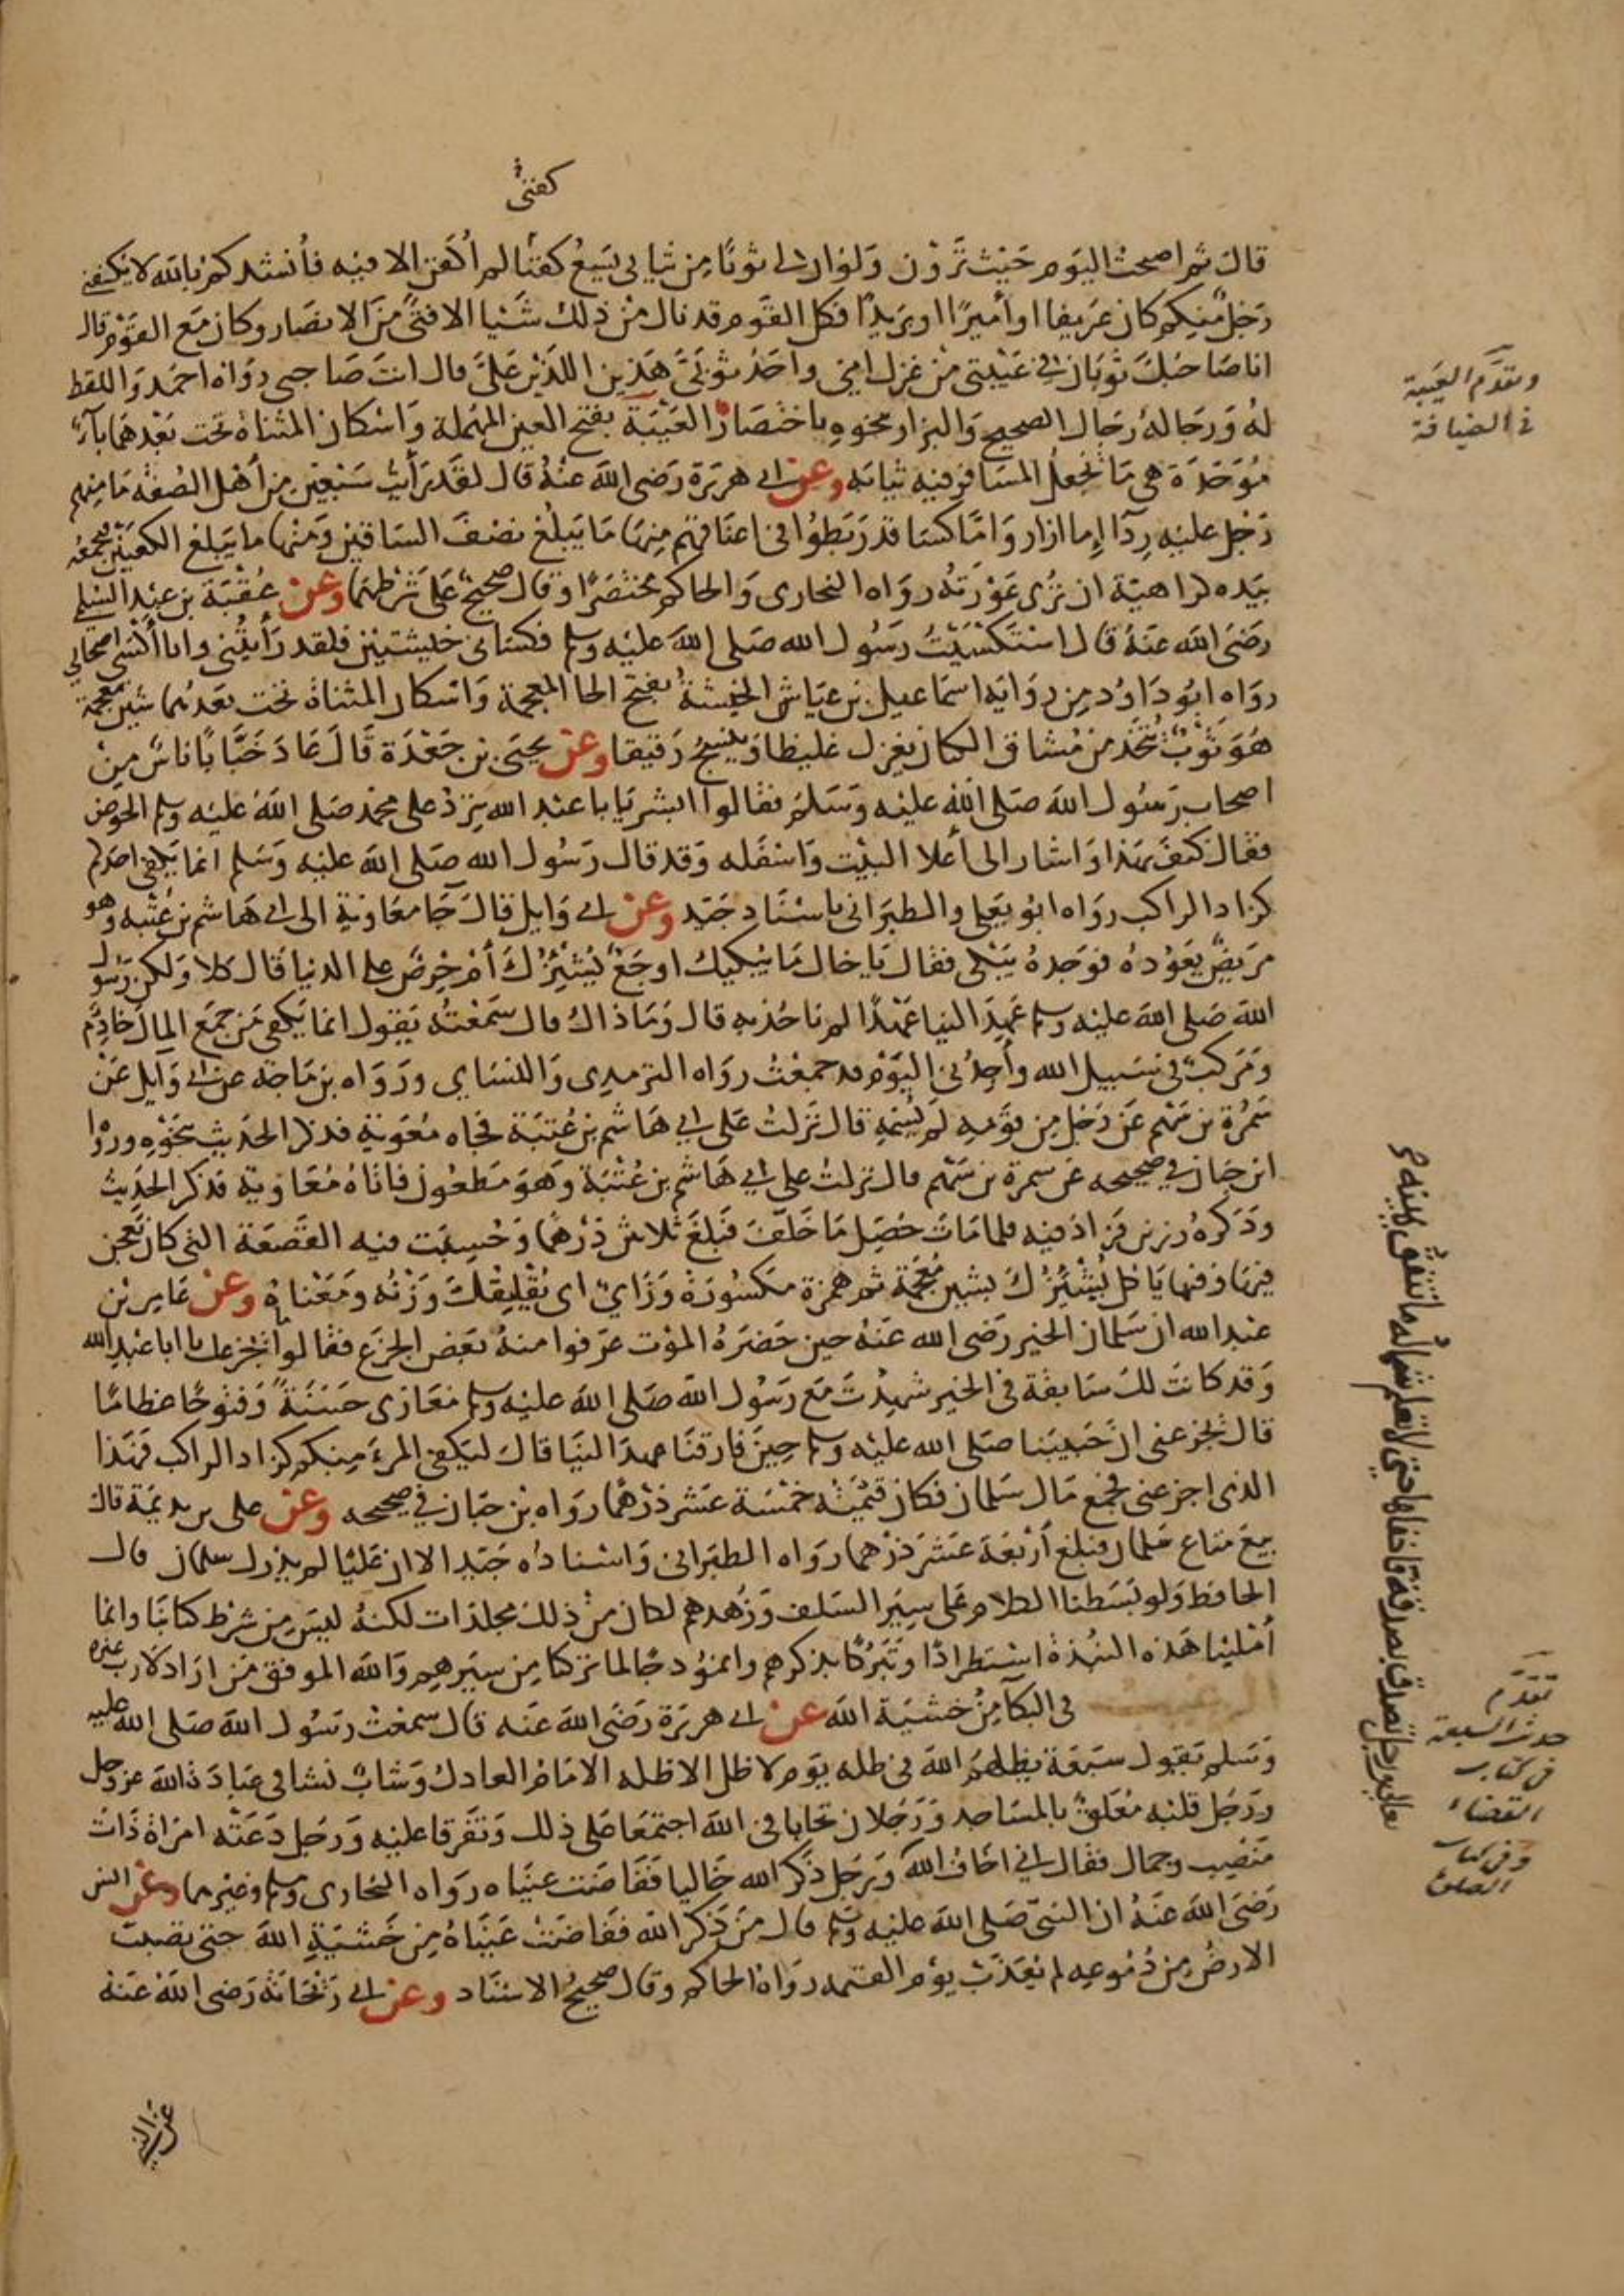 كفنى
قال ثم اصبحت اليوم حيث ترون ولو ان لى ثوبا من ثيابى يسع كفنا لم أكفن الا فيه فأنشدكم بالله لا يكفننى
رجل منكم كان عريفا او أميرا او بريدا فكل القوم قد نال من ذلك شيا الا فتى من الانصار وكان مع القوم قال
انا صاحبك ثوبان فى عيبتى من غزل امى واحد ثوبى هذين اللذين على قال انت صاحبى رواه احمد واللفظ
له ورجاله رجال الصحيح والبزار بنحوه باختصار العيبة بفتح العين المهملة واسكان المثناة تحت بعدهما باء
موحدة هى ما يجعل المسافر فيه ثيابه وعن ابى هريرة رضى الله عنه قال لقد رأيت سبعين من أهل الصفة ما منهم
رجل عليه ردآ إما ازار واما كسا قد ربطوا فى اعناقهم منها ما يبلغ نصف الساقين ومنها ما يبلغ الكعبين فيجمعه
بيده كراهية ان ترى عورته رواه البخارى والحاكم مختصرا وقال صحيح على شرطهما وعن عقبة بن عبد السلمى
رضى الله عنه قال استكسيت رسول الله صلى الله عليه وسلم فكسانى خيشتين فلقد رأيتنى وانا أكسى اصحابى
رواه ابو داود من رواية اسماعيل بن عياش الخيشة بفتح الخا المعجمة واسكان المثناة تحت بعدهما شين معجمة
هو ثوب يتخذ من مشاق الكتان يغزل غليظا وينسج رقيقا وعن يحيى بن جعدة قال عاد خبابا ناس من
اصحاب رسول الله صلى الله عليه وسلم فقالوا ابشر يا با عبد الله ترد على محمد صلى الله عليه وسلم الحوض
فقال كيف بهذا واشار الى أعلا البيت واسفله وقد قال رسول الله صلى الله عليه وسلم انما يكفى احدكم
كزاد الراكب رواه ابو يعلى والطبرانى باسناد جيد وعن ابى وايل قال جا معاوية الى ابى هاشم بن عتبه وهو
مريض يعوده فوجده يبكى فقال يا خال ما يبكيك اوجع يشئزك أم حرص على الدنيا قال كلا ولكن رسول
الله صلى الله عليه وسلم عهد الينا عهدا لم ناخذ به قال وما ذاك قال سمعته يقول انما يكفى من جمع المال خادم
ومركب فى سبيل الله وأجدنى اليوم قد جمعت رواه الترمدى والنساي ورواه بن ماجة عن ابى وايل عن
سمرة بن سهم عن رجل من قومه لم يسمه قال نزلت على ابى هاشم بن عتبة فجاه معوية فذكر الحديث بنحوه ورواه
ابن حبان فى صحيحه عن سمرة بن سهم قال نزلت على ابى هاشم بن عتبة وهو مطعون فاتاه معاوية فذكر الحديث
وذكره رزين فزاد فيه فلما مات حصل ما خلف فبلغ ثلاثين درهما وحسبت فيه القصعة التى كان يعجن
فيها وفيها يا كل يشئزك بشين معجمة ثم همزة مكسورة وزاي اى يقلقك وزنه ومعناه وعن عامر بن
عبد الله ان سلمان الخير رضى الله عنه حين حضره الموت عرفوا منه بعض الجزع فقالوا ما يجزعك يا ابا عبد الله
وقد كانت لك سابقة فى الخير شهدت مع رسول الله صلى الله عليه وسلم مغازى حسنة وفتوحا عظاما
قال يجزعنى ان حبيبنا صلى الله عليه وسلم حين فارقنا عهد الينا قال ليكفى المرء منكم كزاد الراكب فهذا
الذى اجزعنى فجمع مال سلمان فكان قيمته خمسة عشر درهما رواه بن حبان فى صحيحه وعن على بن بديمة قال
بيع متاع سلمان فبلغ أربعة عشر درهما رواه الطبرانى واسناده جيد الا ان عليا لم يدرك سلمان قال
الحافظ ولو بسطنا الكلام على سير السلف وزهدهم لكان من ذلك مجلدات لكنه ليس من شرط كتابنا وانما
أملينا هذه النبذة استطرادا وتبركا بذكرهم وانموذجا لما تركنا من سيرهم والله الموفق من اراد لا رب غيره
فى البكآ من خشية الله عن ابى هريرة رضى الله عنه قال سمعت رسول الله صلى الله عليه
وسلم يقول سبعة يظلهم الله فى ظله يوم لا ظل الا ظله الامام العادل وشاب نشا فى عبادة الله عز وجل
ورجل قلبه معلق بالمساجد ورجلان تحابا فى الله اجتمعا على ذلك وتفرقا عليه ورجل دعته امراة ذات
منصب وجمال فقال انى اخاف الله ورجل ذكر الله خاليا ففاضت عيناه رواه البخارى ومسلم وغيرهما وعن انس
رضى الله عنه ان النبى صلى الله عليه وسلم قال من ذكر الله ففاضت عيناه من خشية الله حتى يصيب
الارض من دموعه لم يعذب يوم القيمه رواه الحاكم وقال صحيح الاسناد وعن ابى ريحانة رضى الله عنه
وتقدم العيبة
فى الضيافة
ورجل تصدق بصدقة فاخفاها حتى لا تعلم شماله ما تنفق يمينه
تقدم
حديث السبعة
فى كتاب
القضاء
وفى كتاب
الصلوة